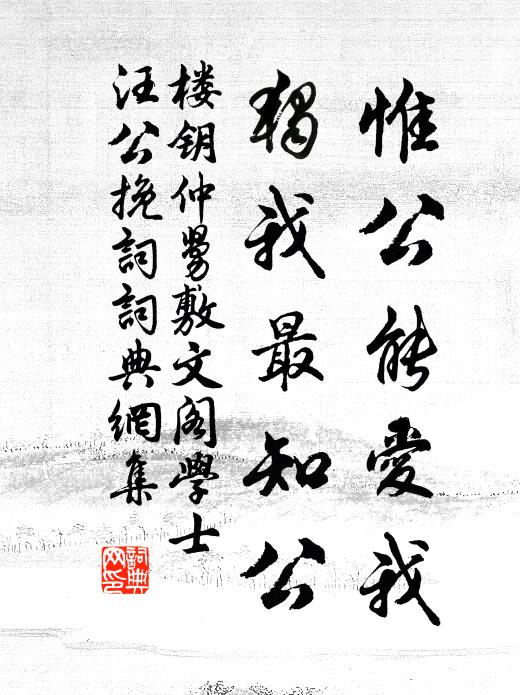 惟公能愛我
獨我最知公
楼钥仲舅敷文阁學士
汪公挽詞詞典網集
詞典
网印